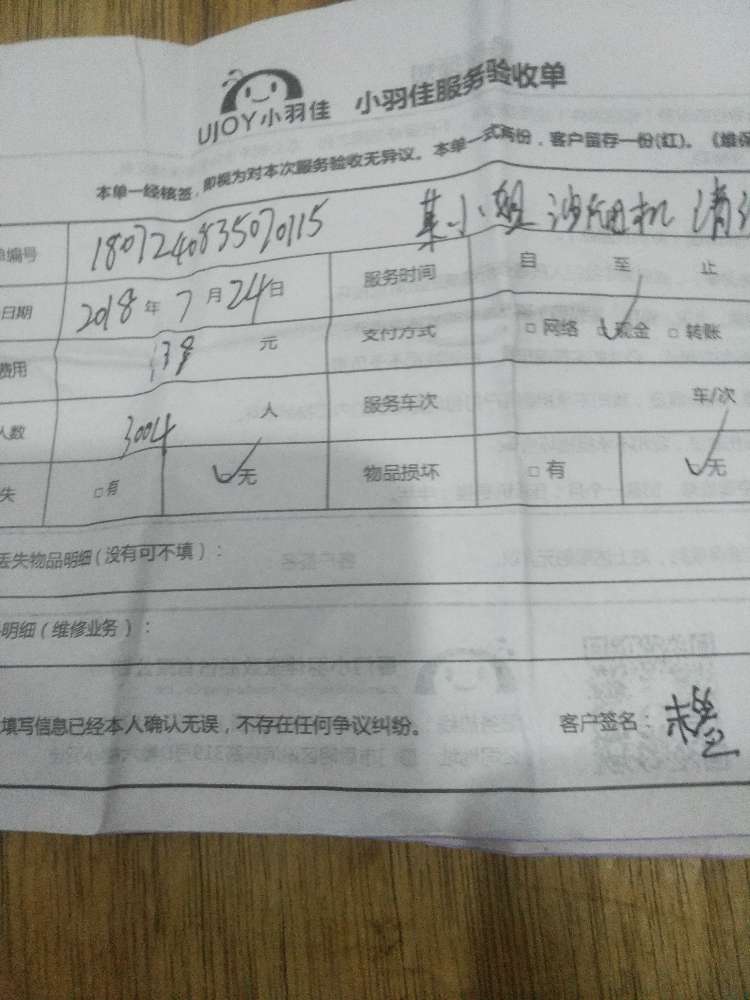 UJOY小羽佳 小羽佳服务验收单
本单一经核签，即视为对本次服务验收无异议。本单一式两份，客户留存一份(红)。《维保
单编号 1807240835070115 某小姐 油烟机 清洗
日期 2018年7月24日 服务时间 自 至 止
费用 138 元 支付方式 □网络 ☑现金 □转账
人数 3004 人 服务车次 车/次
失 □有 ✓无 物品损坏 □有 ✓无
丢失物品明细(没有可不填)：
明细(维修业务)：
填写信息已经本人确认无误，不存在任何争议纠纷。 客户签名：